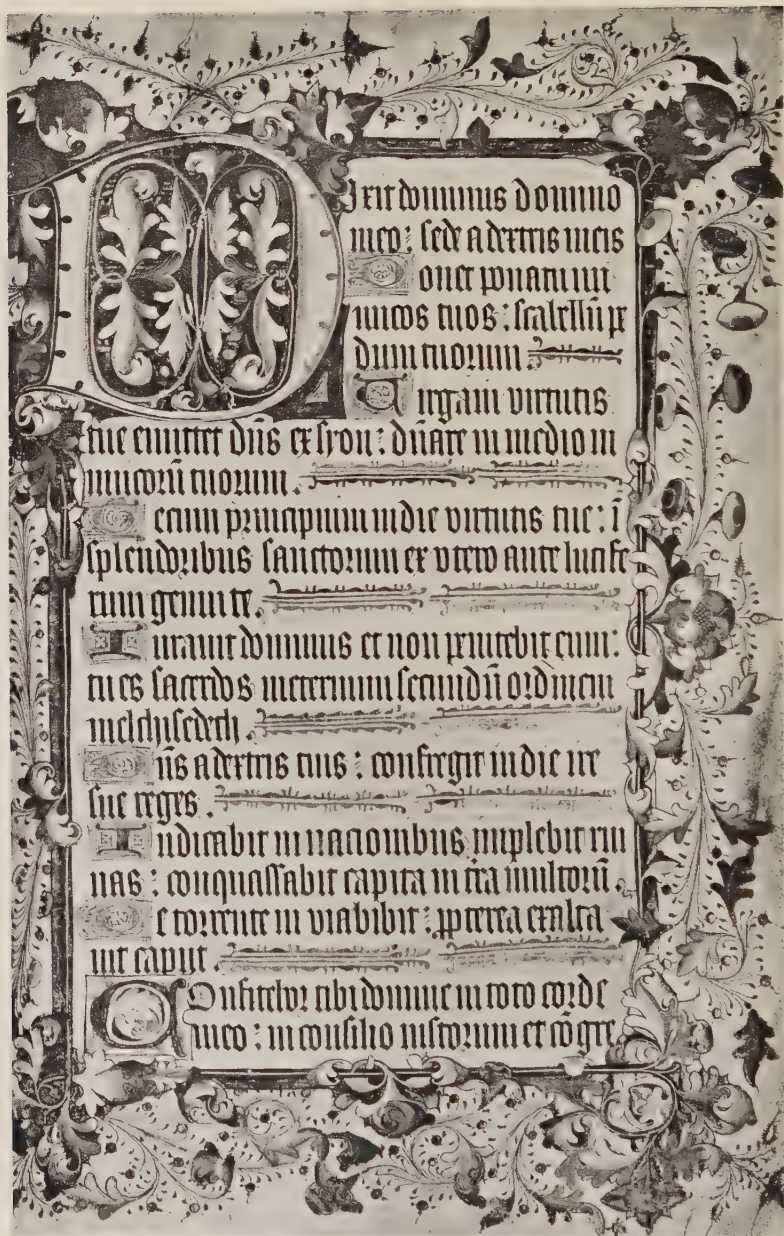 Dixit dominus domino
meo: sede a dextris meis
Donec ponam ini
micos tuos: scabellũ pe
dum tuorum.
Uirgam virtutis
tue emittet dñs ex syon: dñare in medio ini
micorũ tuorum.
Tecum principium in die virtutis tue: ĩ
splendoribus sanctorum ex vtero ante lucife
rum genui te.
Iurauit dominus et non penitebit eum:
tu es sacerdos in eternum secundũ ordinem
melchisedech.
Dñs a dextris tuis: confregit in die ire
sue reges.
Iudicabit in nacionibus implebit rui
nas: conquassabit capita in tra multorũ.
De torrente in via bibit: ꝓpterea exalta
uit caput.
COnfitebor tibi domine in toto corde
meo: in consilio iustorum et cõgre